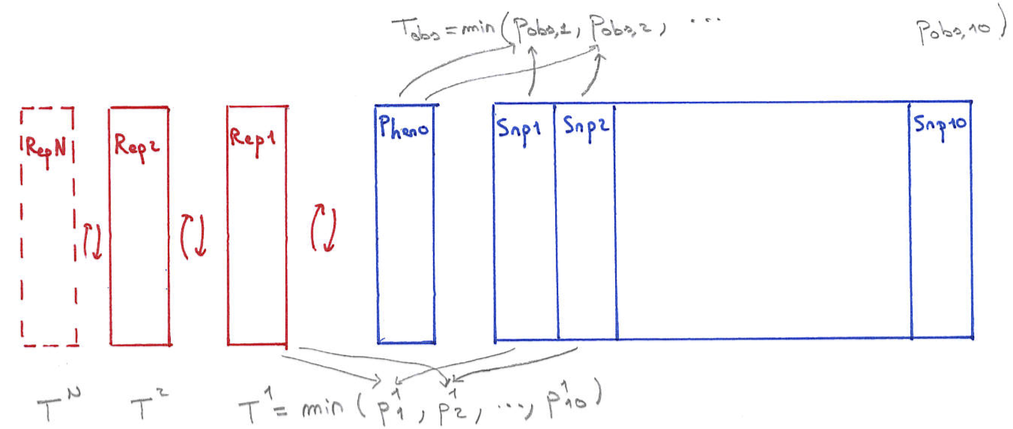 T_obs = min(p_obs,1, p_obs,2, ... p_obs,10)
RepN Rep2 Rep1 Pheno Snp1 Snp2 Snp10
T^N T^2 T^1 = min(p_1^1, p_2^1, ..., p_10^1)